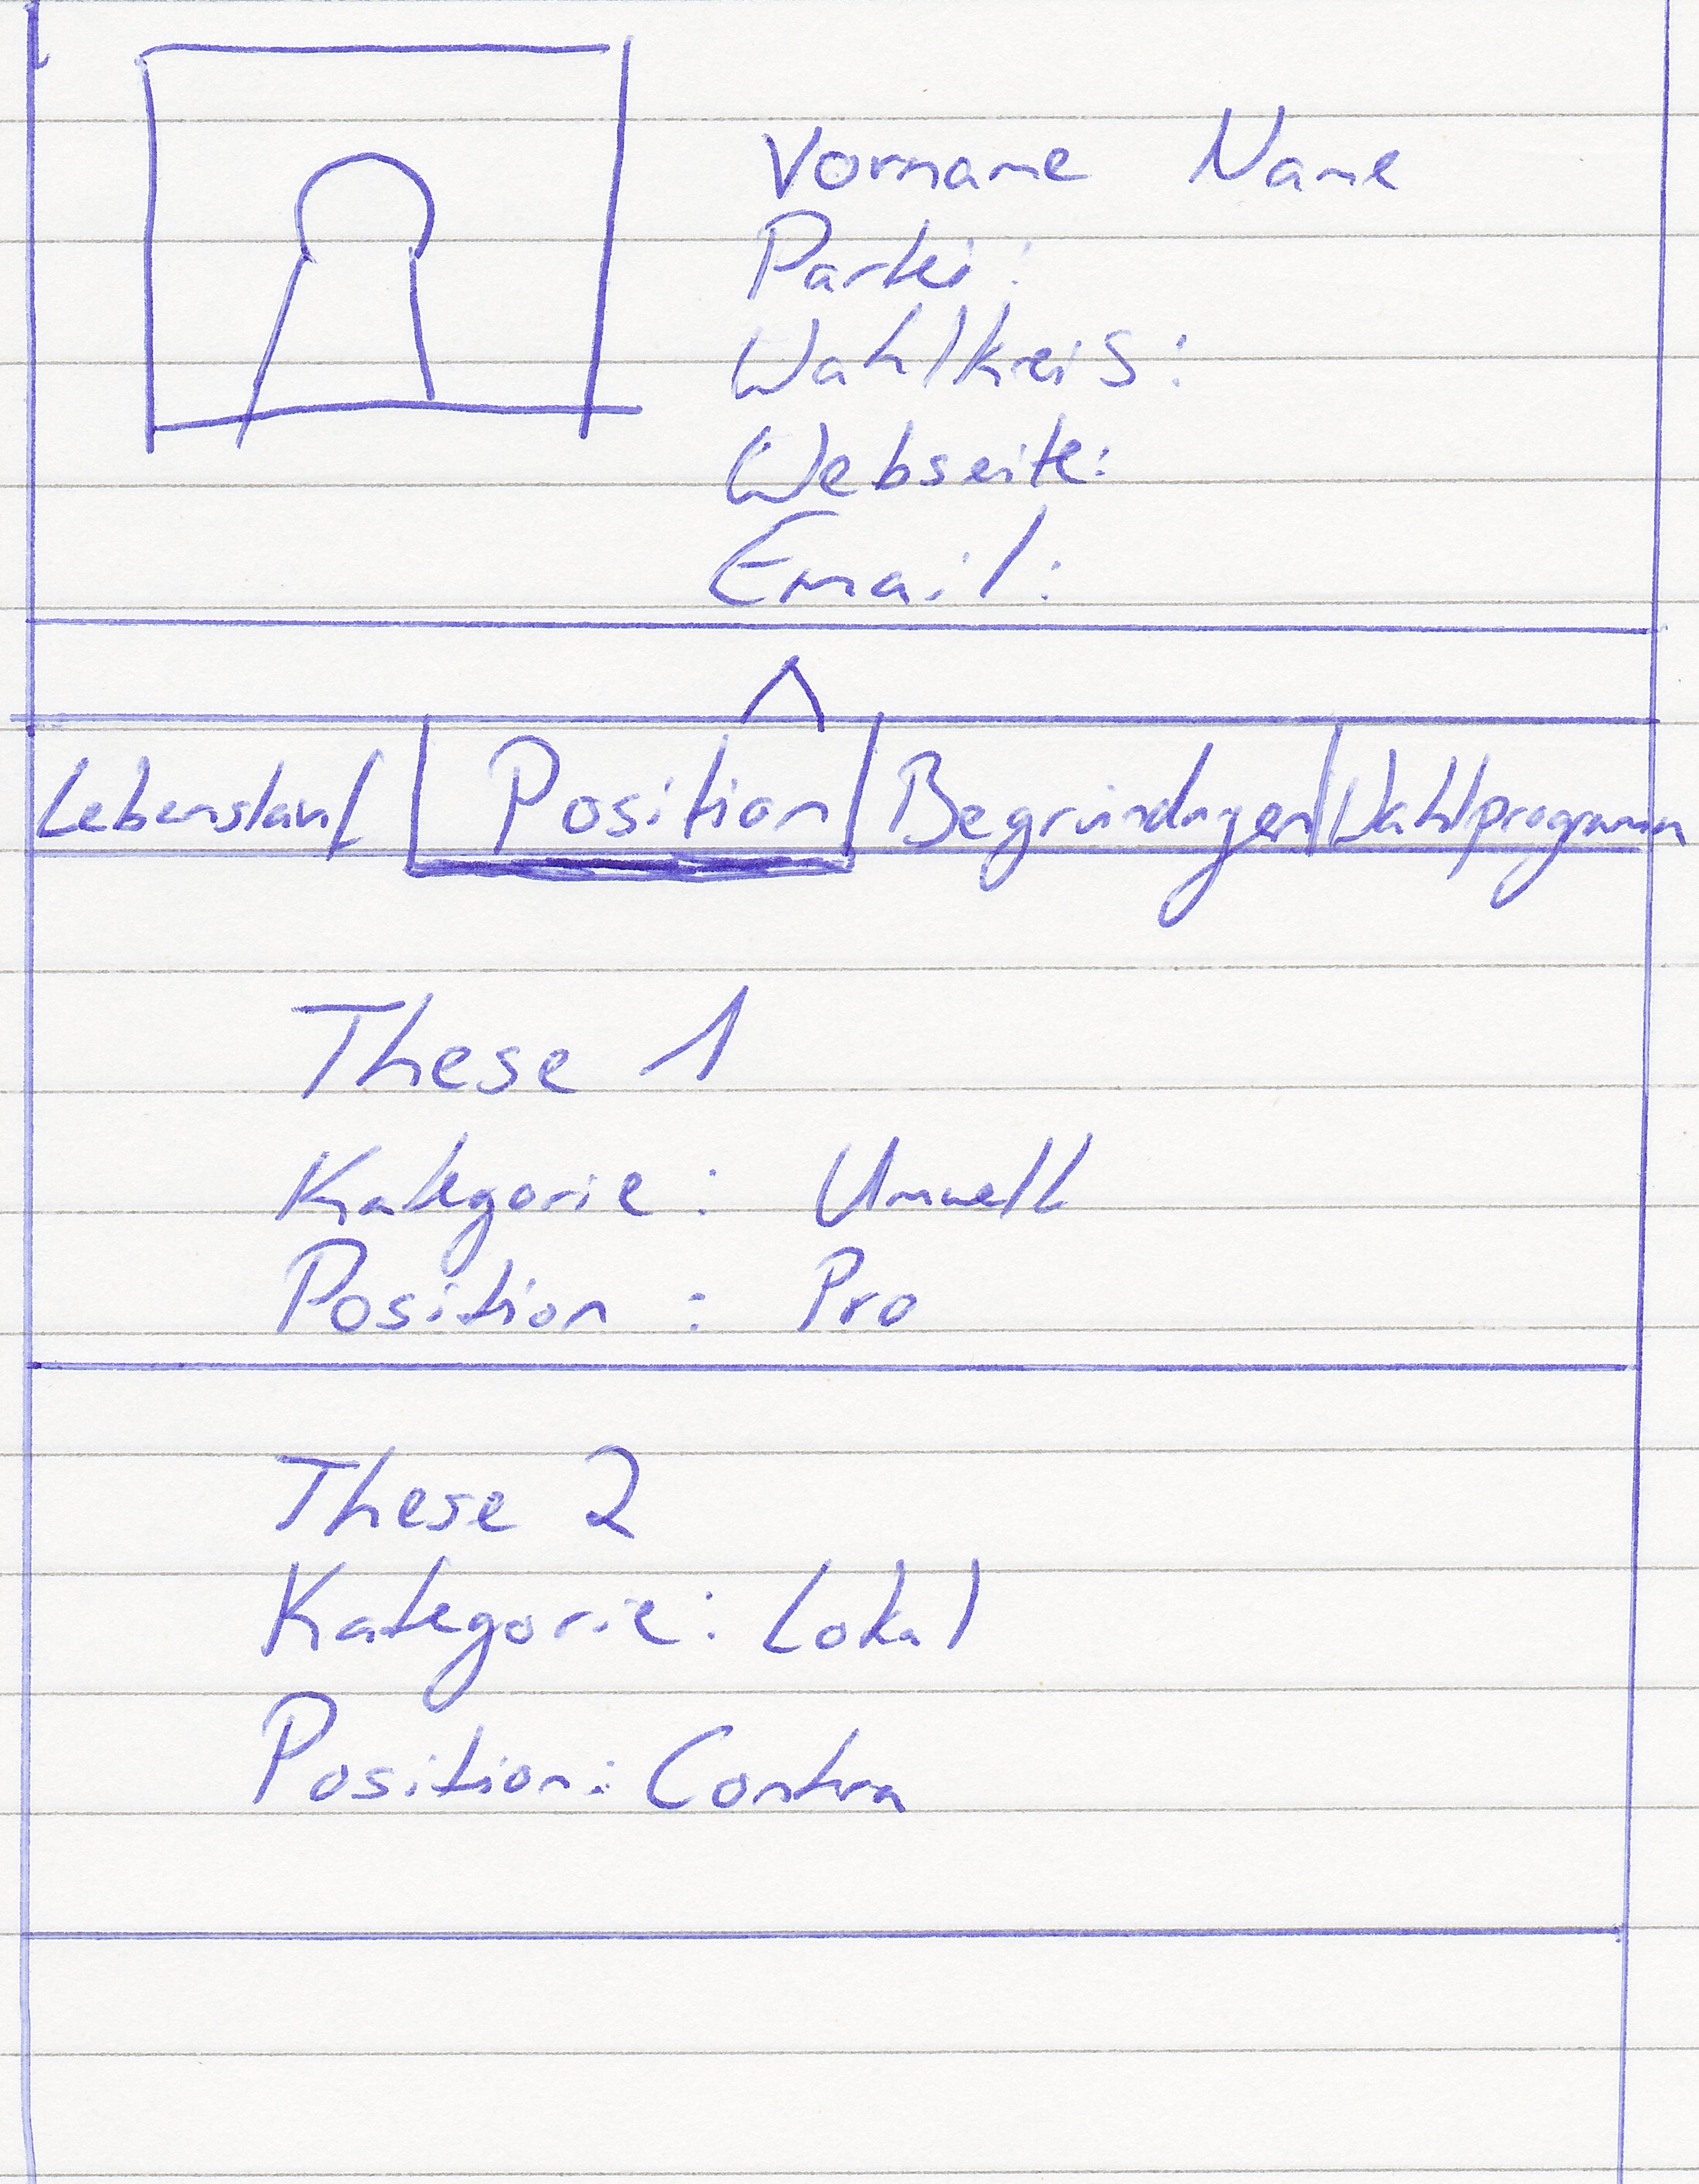 Vorname Name
Partei:
Wahlkreis:
Webseite:
Email:
Lebenslauf Position Begründungen Wahlprogramm
These 1
Kategorie: Umwelt
Position: Pro
These 2
Kategorie: Lokal
Position: Contra